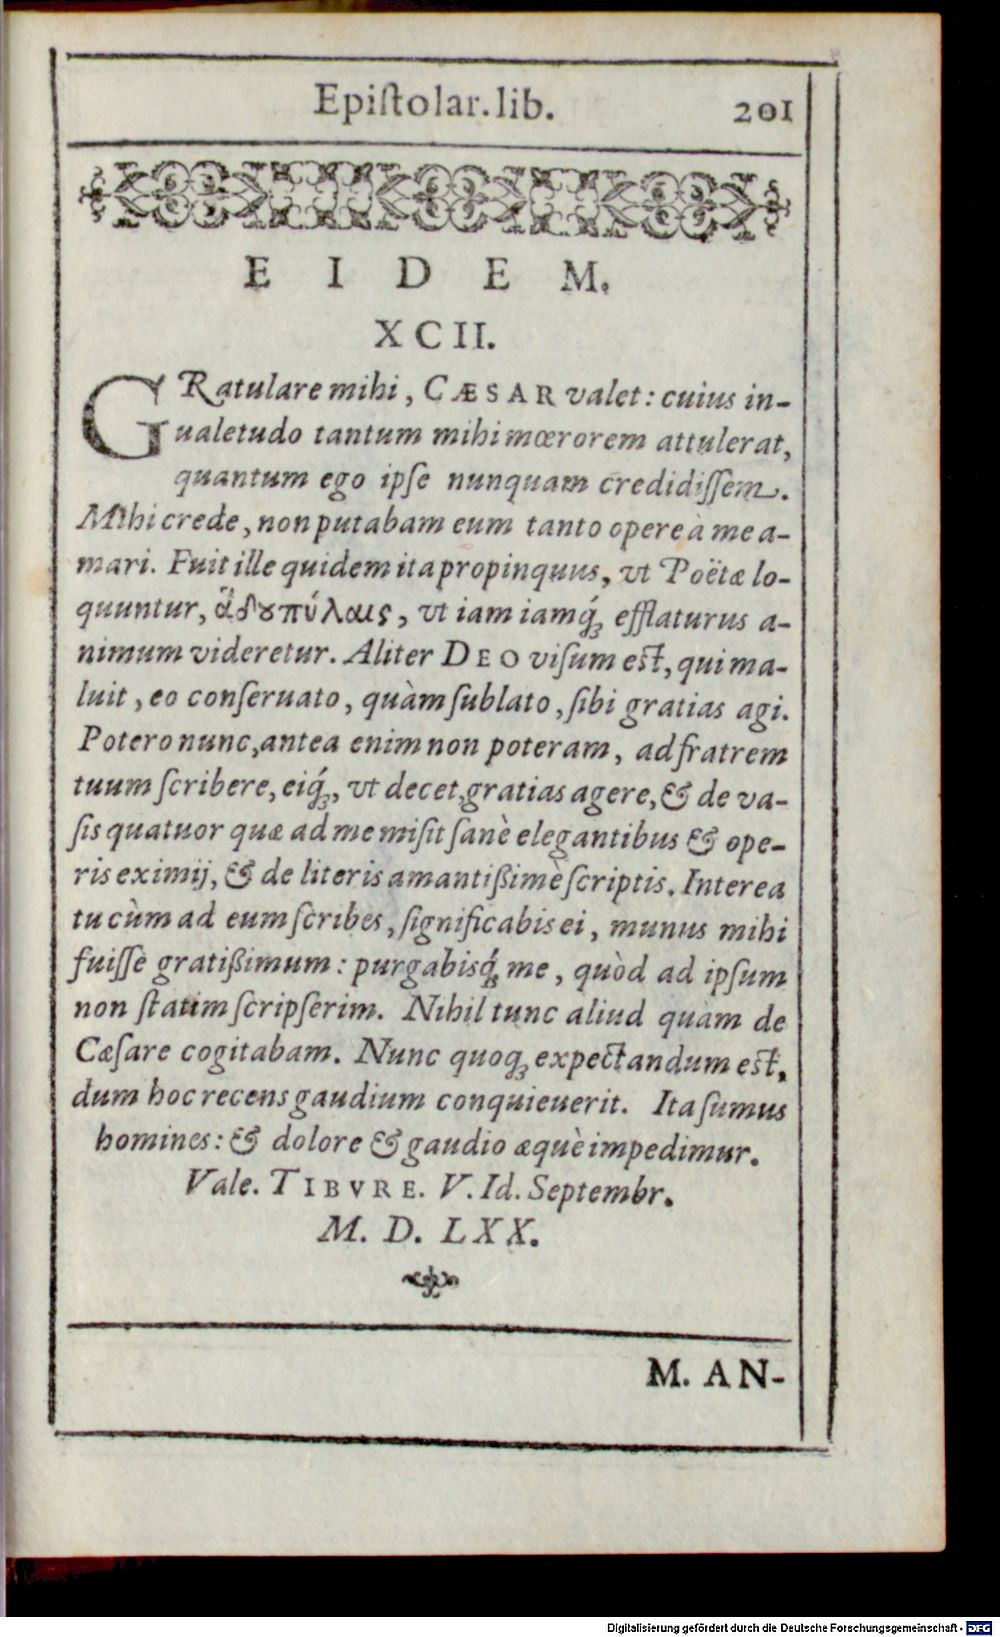 Epiſtolar. lib. 201
EIDEM.
XCII.
GRatulare mihi, CÆSAR valet: cuius in-
ualetudo tantum mihi mœrorem attulerat,
quantum ego ipſe nunquam credidiſſem.
Mihi crede, non putabam eum tanto opere à me a-
mari. Fuit ille quidem ita propinquus, vt Poëtæ lo-
quuntur, ἄδου πύλαις, vt iam iamq́ꝫ efflaturus a-
nimum videretur. Aliter DEO viſum eſt, qui ma-
luit, eo conſeruato, quàm ſublato, ſibi gratias agi.
Potero nunc, antea enim non poteram, ad fratrem
tuum ſcribere, eiq́ꝫ, vt decet, gratias agere, & de va-
ſis quatuor quæ ad me miſit ſanè elegantibus & ope-
ris eximij, & de literis amantißimè ſcriptis. Interea
tu cùm ad eum ſcribes, ſignificabis ei, munus mihi
fuiſſe gratißimum: purgabisq́ꝫ me, quòd ad ipſum
non ſtatim ſcripſerim. Nihil tunc aliud quàm de
Cæſare cogitabam. Nunc quoqꝫ expectandum eſt,
dum hoc recens gaudium conquieuerit. Ita ſumus
homines: & dolore & gaudio æquè impedimur.
Vale. TIBVRE. V. Id. Septembr.
M. D. LXX.
M. AN-
Digitalisierung gefördert durch die Deutsche Forschungsgemeinschaft - DFG